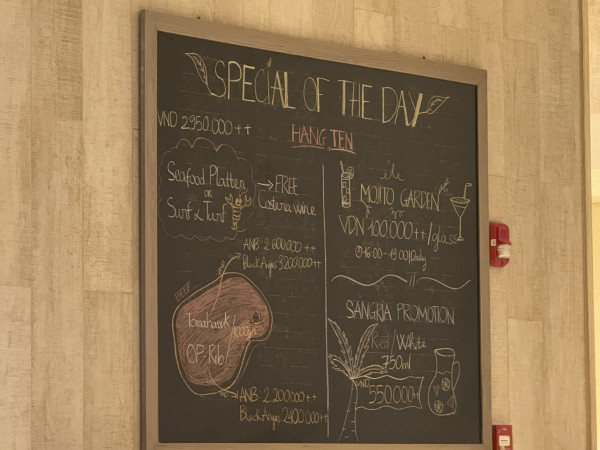 SPECIAL OF THE DAY
HANG TEN
VND 2950.000++
Seafood Platter
OR
Surf & Turf
→ FREE
Costera wine
ANB: 2.600000 ++
Black Angus 3200000++
BEEF
Tomahawk
OP-Rib
ANB: 2.200000 ++
Black Angus 2400000++
MOJITO GARDEN
VDN 100.000++/glass
16:00 - 19:00|Daily
SANGRIA PROMOTION
Red/White
750ml
VND
550.000++